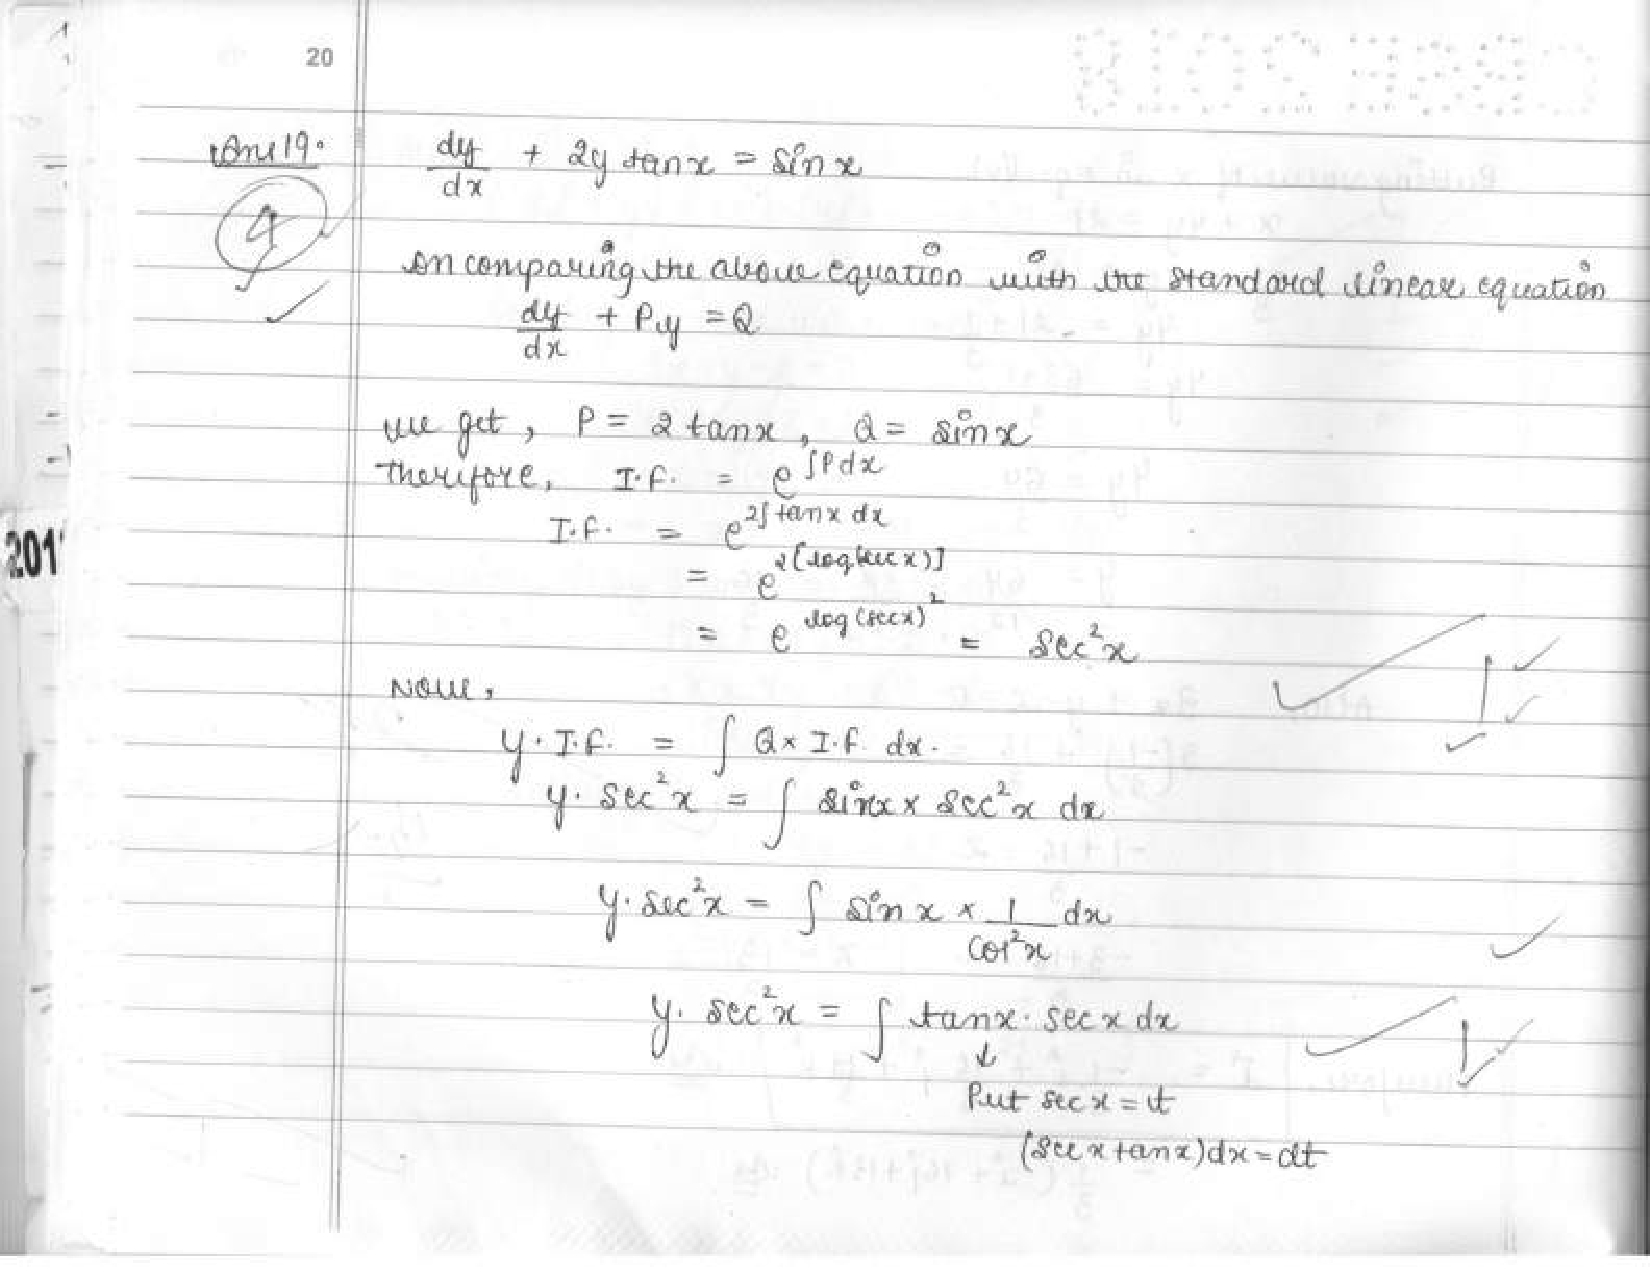 20
CBSE 2018
Ans 19. dy/dx + 2y tanx = sinx
4
on comparing the above equation with the standard linear equation
dy/dx + P.y = Q
we get, P = 2 tanx, Q = sinx
therefore, I.F. = e^∫Pdx
I.F. = e^2∫tanx dx
= e^2[log(sec x)]
= e^log(secx)^2 = sec²x
Now,
y. I.F. = ∫ Q× I.F. dx.
y. sec²x = ∫ sinx × sec²x dx
y. sec²x = ∫ sin x × 1/cos²x dx
y. sec²x = ∫ tanx. sec x dx
↓
Put sec x = t
(sec x tanx)dx = dt
201